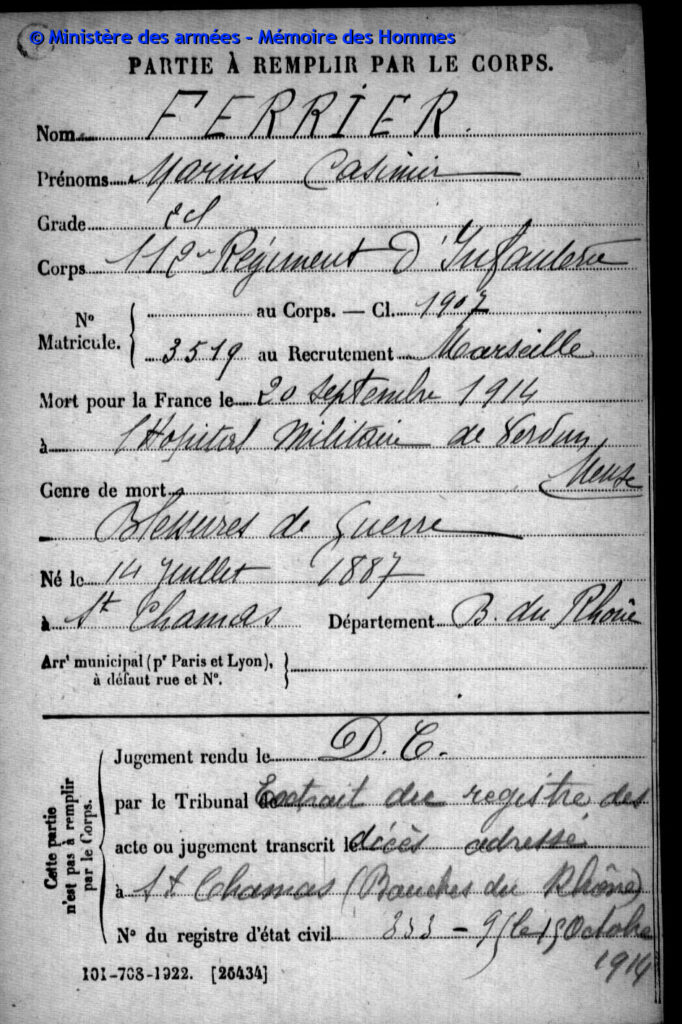 © Ministère des armées - Mémoire des Hommes
PARTIE À REMPLIR PAR LE CORPS.
Nom FERRIER.
Prénoms Marius Casimir
Grade
Corps 112e Régiment d'Infanterie
N° Matricule. { au Corps. — Cl. 1907
3519 au Recrutement Marseille
Mort pour la France le 20 Septembre 1914
à l'Hopital Militaire de Verdun
Meuse
Genre de mort
Blessures de Guerre
Né le 14 Juillet 1887
à St Chamas Département B. du Rhône
Arrt municipal (pr Paris et Lyon), }
à défaut rue et N°.
Cette partie n'est pas à remplir par le Corps.
Jugement rendu le D. C.
par le Tribunal de Extrait du registre des
acte ou jugement transcrit le décès adressé
à St Chamas (Bouches du Rhône)
N° du registre d'état civil 333 - 95 le 15 Octobre
1914
101-708-1922. [26434]